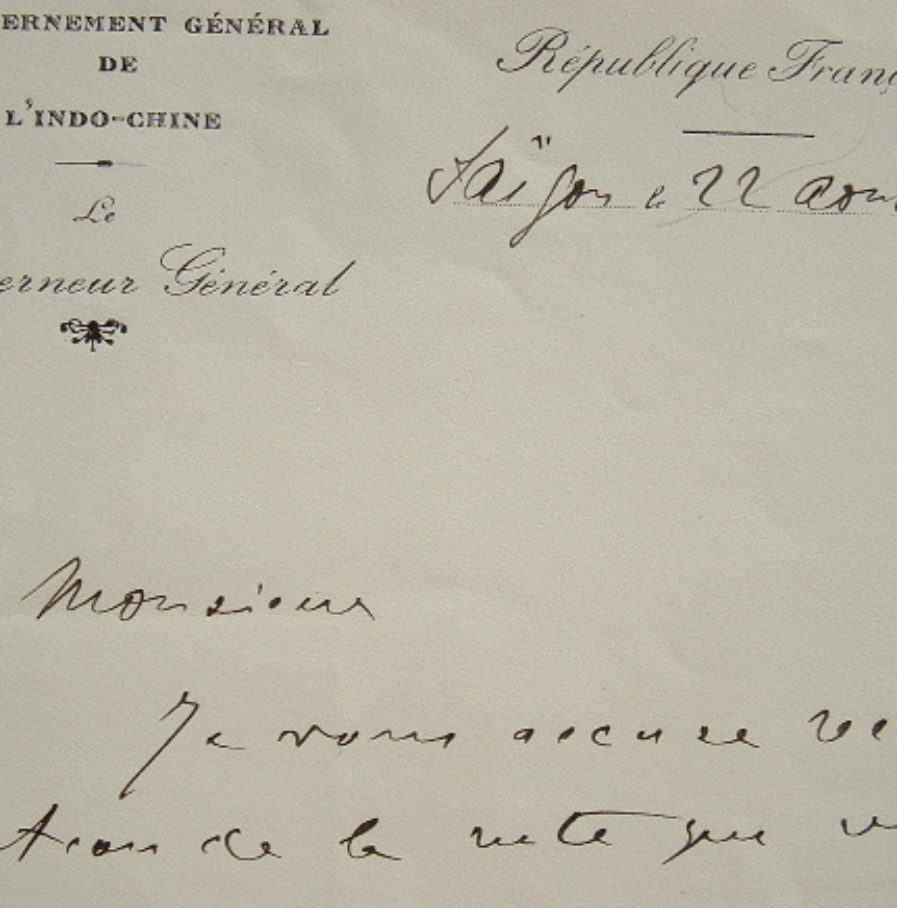 ERNEMENT GÉNÉRAL
DE
L'INDO-CHINE
Le
erneur Général
République Franç
Saïgon le 22 aou
Monsieur
Je vous accuse rec
tion de la note que v